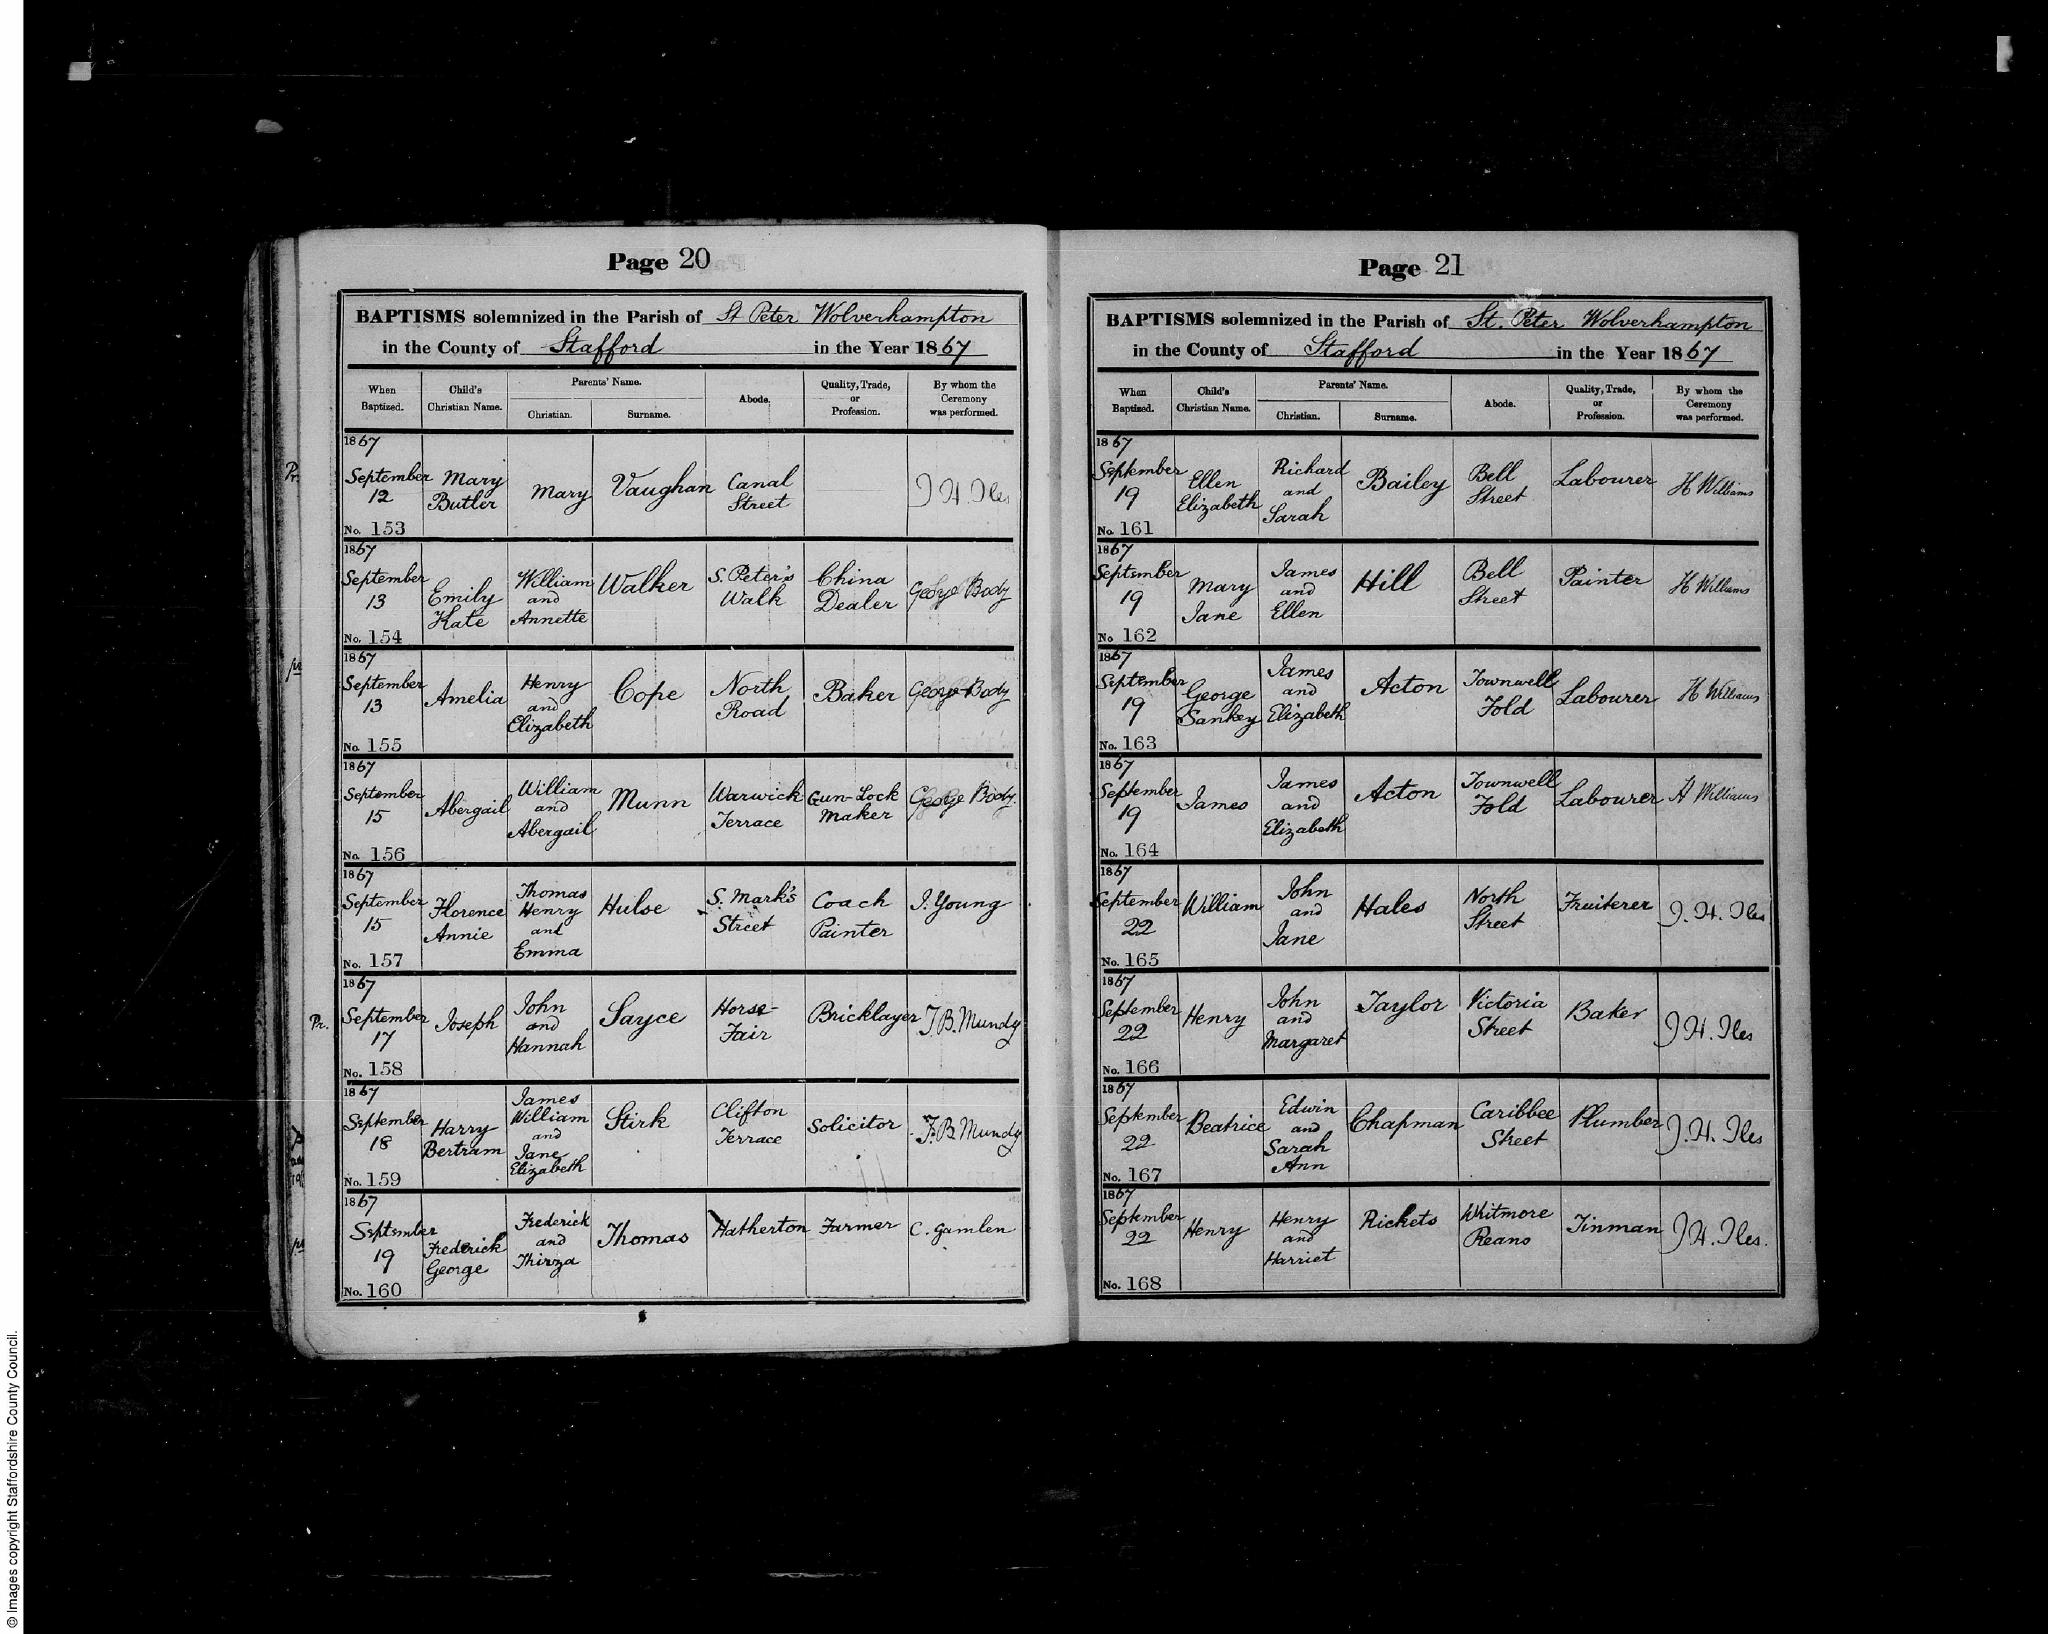 Page 20
BAPTISMS solemnized in the Parish of St Peter Wolverhampton
in the County of Stafford in the Year 1867
When Baptized. Child's Christian Name. Parents' Name. Christian. Surname. Abode. Quality, Trade, or Profession. By whom the Ceremony was performed.
1867 September 12 No. 153 Mary Butler Mary Vaughan Canal Street J. H. Iles
Pr.
1867 September 13 No. 154 Emily Kate William and Annette Walker S. Peter's Walk China Dealer George Body
1867 September 13 No. 155 Amelia Henry and Elizabeth Cope North Road Baker George Body
pr
1867 September 15 No. 156 Abergail William and Abergail Munn Warwick Terrace Gun-Lock Maker George Body.
1867 September 15 No. 157 Florence Annie Thomas Henry and Emma Hulse S. Mark's Street Coach Painter J. Young
1867 September 17 No. 158 Joseph John and Hannah Sayce Horse-Fair Bricklayer J. B. Mundy
Pr.
1867 September 18 No. 159 Harry Bertram James William and Jane Elizabeth Stirk Clifton Terrace Solicitor J. B. Mundy
1867 September 19 No. 160 Frederick George Frederick and Thirza Thomas Hatherton Farmer C. Gamlen
pr
Page 21
BAPTISMS solemnized in the Parish of St. Peter Wolverhampton
in the County of Stafford in the Year 1867
When Baptized. Child's Christian Name. Parents' Name. Christian. Surname. Abode. Quality, Trade, or Profession. By whom the Ceremony was performed.
1867 September 19 No. 161 Ellen Elizabeth Richard and Sarah Bailey Bell Street Labourer H Williams
1867 September 19 No 162 Mary Jane James and Ellen Hill Bell Street Painter H Williams
1867 September 19 No. 163 George Sankey James and Elizabeth Acton Townwell Fold Labourer H Williams
1867 September 19 No. 164 James James and Elizabeth Acton Townwell Fold Labourer H Williams
1867 September 22 No. 165 William John and Jane Hales North Street Fruiterer J. H. Iles
1867 September 22 No. 166 Henry John and Margaret Taylor Victoria Street Baker J. H. Iles
1867 September 22 No. 167 Beatrice Edwin and Sarah Ann Chapman Caribbee Street Plumber J. H. Iles
1867 September 22 No. 168 Henry Henry and Harriet Rickets Whitmore Reans Tinman J. H. Iles.
© Images copyright Staffordshire County Council.